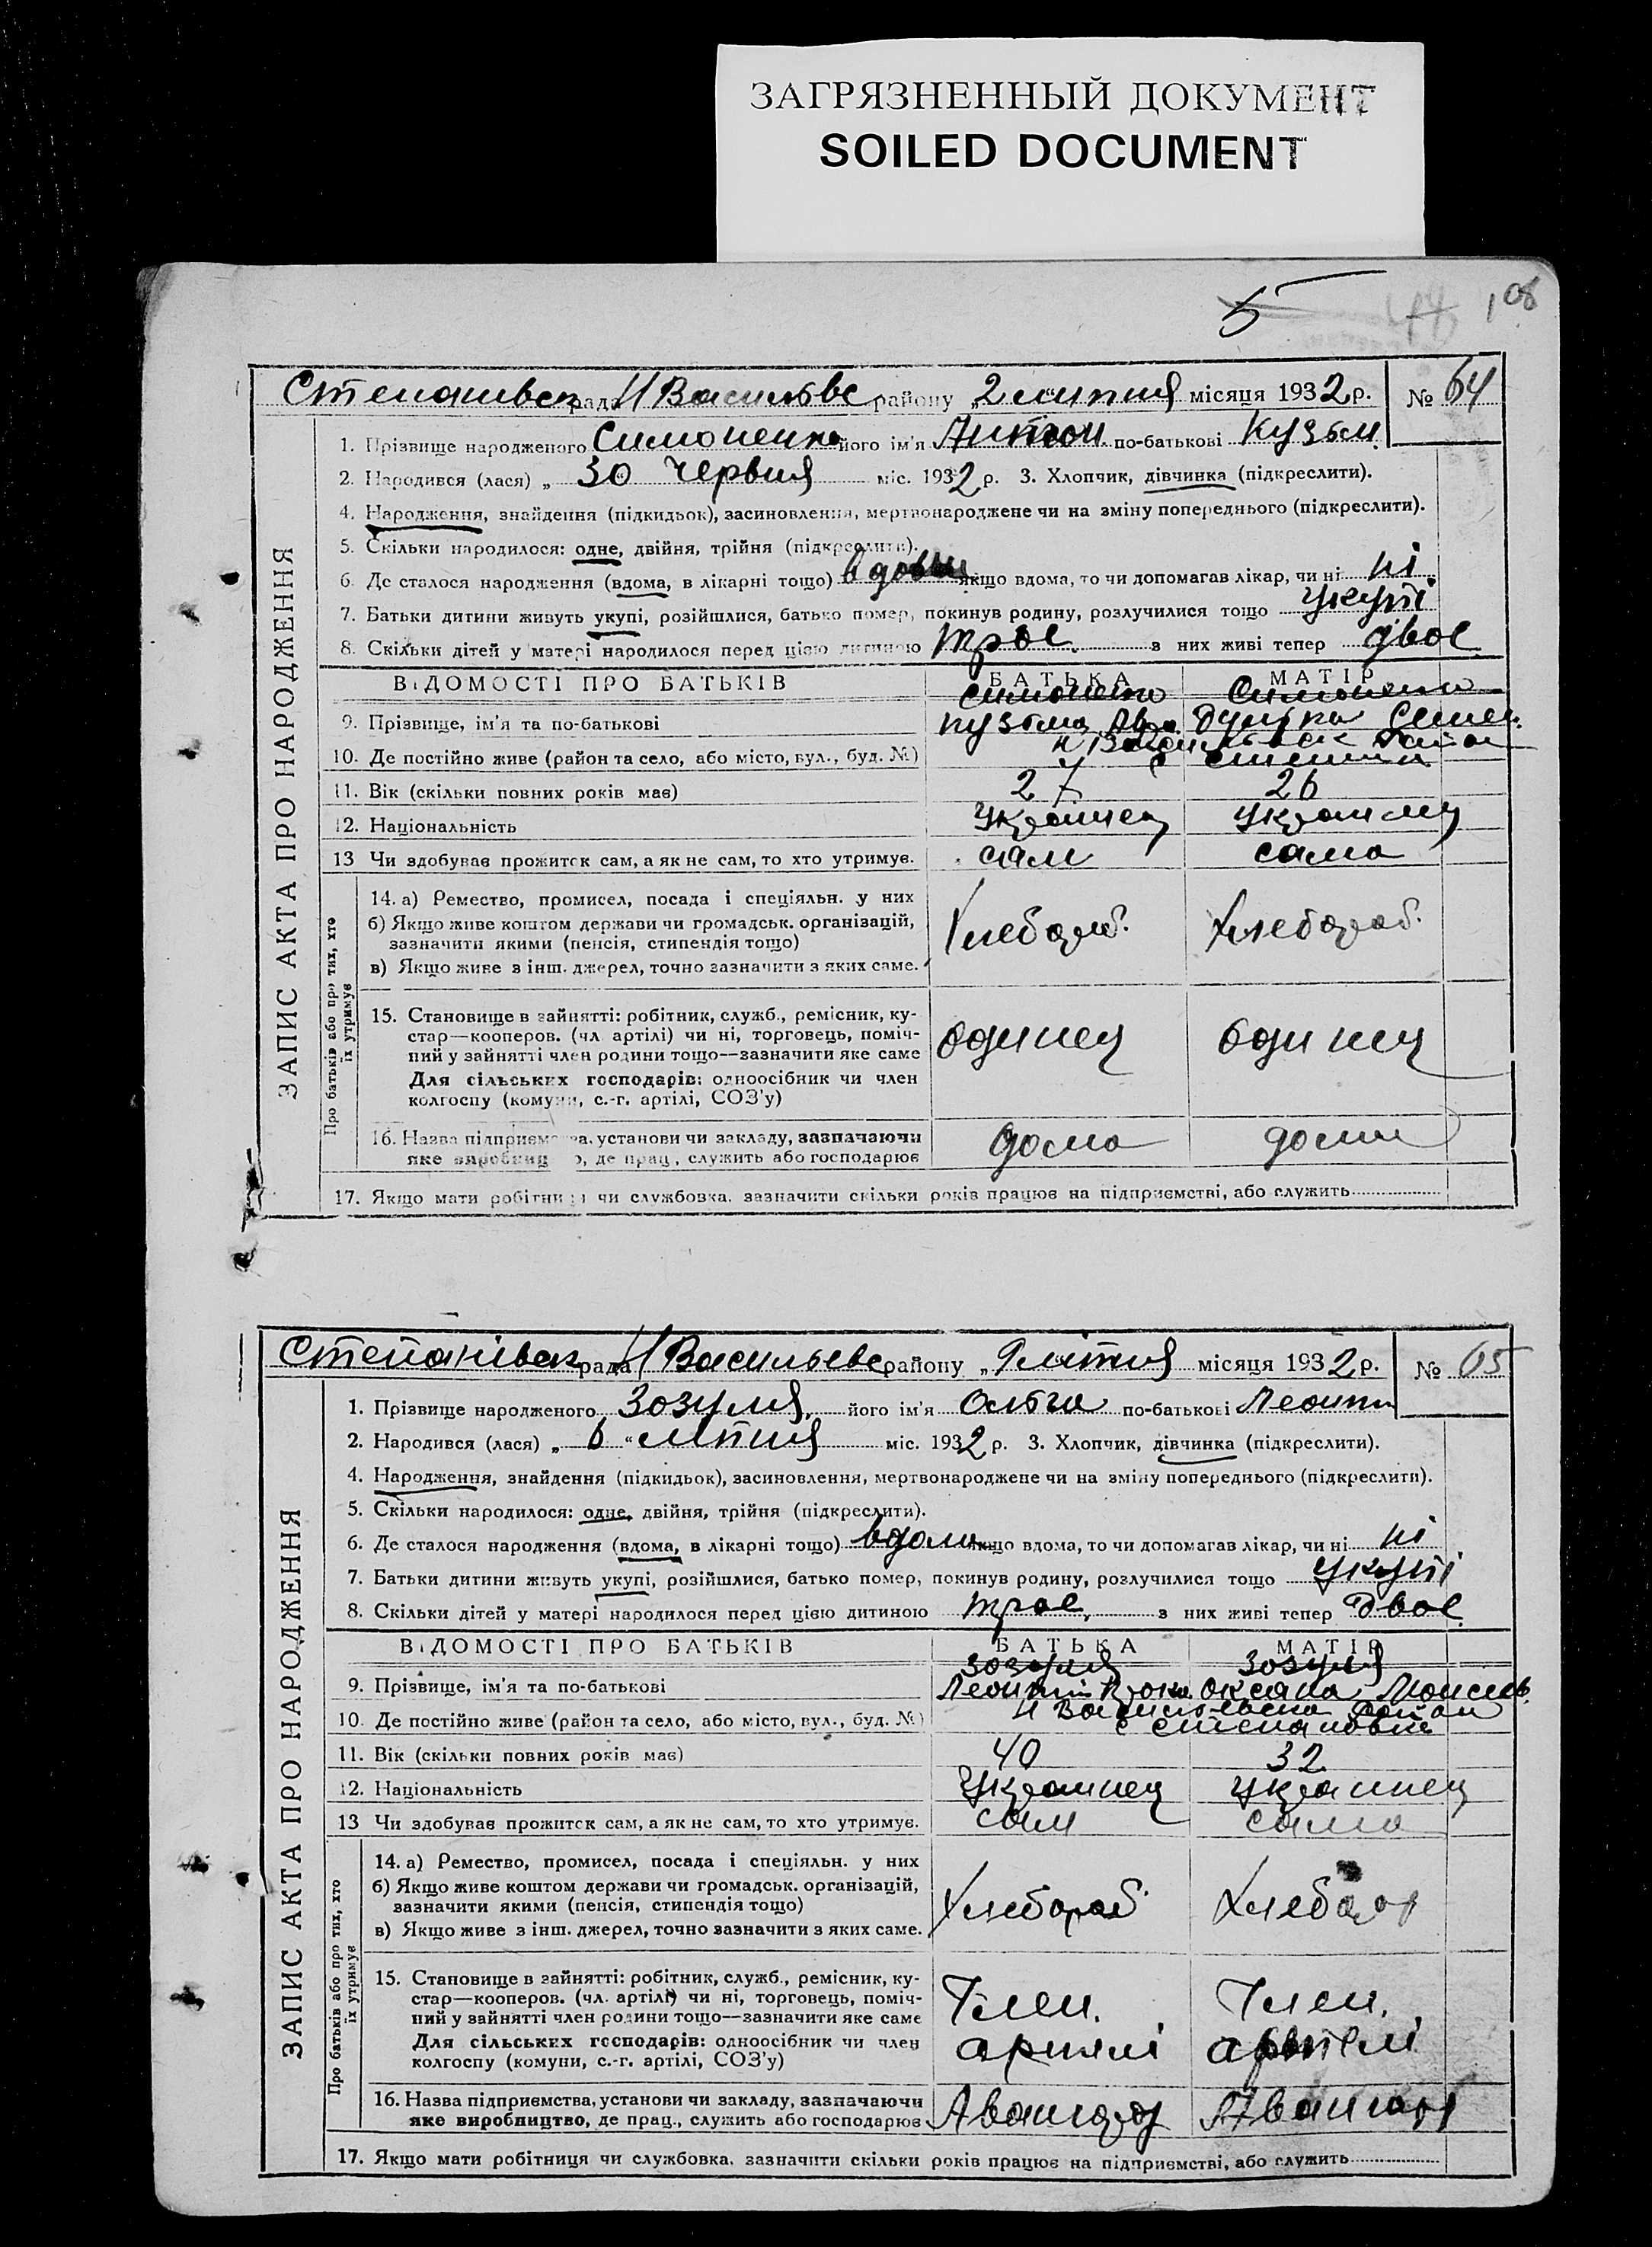 ЗАГРЯЗНЕННЫЙ ДОКУМЕНТ
SOILED DOCUMENT
5
108
ЗАПИС АКТА ПРО НАРОДЖЕННЯ
Степанивск рада Н Васильевс району „2 липня місяця 1932 р. № 64
1. Прізвище народженого Симоненко його ім'я Антон по-батькові Кузьм.
2. Народився (лася) „ 30 червня міс. 1932 р. 3. Хлопчик, дівчинка (підкреслити).
4. Народження, знайдення (підкидьок), засиновлення, мертвонароджене чи на зміну попереднього (підкреслити).
5. Скільки народилося: одне, двійня, трійня (підкреслити).
6. Де сталося народження (вдома, в лікарні тощо) вдома якщо вдома, то чи допомагав лікар, чи ні ні.
7. Батьки дитини живуть укупі, розійшлися, батько помер, покинув родину, розлучилися тощо укупі
8. Скільки дітей у матері народилося перед цією дитиною трое. з них живі тепер двое
ВІДОМОСТІ ПРО БАТЬКІВ БАТЬКА МАТІР
Симоненко Симоненко
9. Прізвище, ім'я та по-батькові Кузьма Семен.
10. Де постійно живе (район та село, або місто, вул., буд. №)
11. Вік (скільки повних років має) 27 26
12. Національність Украинец Украинец
13 Чи здобував прожиток сам, а як не сам, то хто утримує. сам сама
Про батьків або про тих, хто
їх утримує
14. а) Ремество, промисел, посада і спеціяльн. у них
б) Якщо живе коштом держави чи громадськ. організацій,
зазначити якими (пенсія, стипендія тощо) Хлебороб. Хлебороб.
в) Якщо живе з інш. джерел, точно зазначити з яких саме.
15. Становище в зайнятті: робітник, служб., ремісник, ку-
стар—кооперов. (чл артілі) чи ні, торговець, поміч-
ний у зайнятті член родини тощо—зазначити яке саме одинец одинец
Для сільських господарів: одноосібник чи член
колгоспу (комуни, с.-г. артілі, СОЗ'у)
16. Назва підприємства, установи чи закладу, зазначаючи дома дома
яке виробництво, де прац., служить або господарює
17. Якщо мати робітниця чи службовка, зазначити скільки років працює на підприємстві, або служить
ЗАПИС АКТА ПРО НАРОДЖЕННЯ
Степанівск рада Н Васильевс району „ 9 літня місяця 1932 р. № 65
1. Прізвище народженого Зозуля, його ім'я Ольга по-батькові Леонти
2. Народився (лася) „ 6 “ літня міс. 1932 р. 3. Хлопчик, дівчинка (підкреслити).
4. Народження, знайдення (підкидьок), засиновлення, мертвонароджене чи на зміну попереднього (підкреслити).
5. Скільки народилося: одне, двійня, трійня (підкреслити).
6. Де сталося народження (вдома, в лікарні тощо) вдома якщо вдома, то чи допомагав лікар, чи ні ні
7. Батьки дитини живуть укупі, розійшлися, батько помер, покинув родину, розлучилися тощо укупі
8. Скільки дітей у матері народилося перед цією дитиною трое, з них живі тепер двое
ВІДОМОСТІ ПРО БАТЬКІВ БАТЬКА МАТІР
Зозуля Зозуля
9. Прізвище, ім'я та по-батькові Леонтий Оксана Моисеев.
Н Васильевска район
10. Де постійно живе (район та село, або місто, вул., буд. №) с Степановки
11. Вік (скільки повних років має) 40 32
12. Національність Украинец Украинец
13 Чи здобував прожиток сам, а як не сам, то хто утримує. сам сама
Про батьків або про тих, хто
їх утримує
14. а) Ремество, промисел, посада і спеціяльн. у них
б) Якщо живе коштом держави чи громадськ. організацій,
зазначити якими (пенсія, стипендія тощо) Хлебороб Хлебороб
в) Якщо живе з інш. джерел, точно зазначити з яких саме.
15. Становище в зайнятті: робітник, служб., ремісник, ку-
стар—кооперов. (чл. артілі) чи ні, торговець, поміч- Член. Член.
ний у зайнятті член родини тощо—зазначити яке саме
Для сільських господарів: одноосібник чи член артілі артелі
колгоспу (комуни, с.-г. артілі, СОЗ'у)
16. Назва підприємства, установи чи закладу, зазначаючи
яке виробництво, де прац., служить або господарює Авангард Авангард
17. Якщо мати робітниця чи службовка, зазначити скільки років працює на підприємстві, або служить